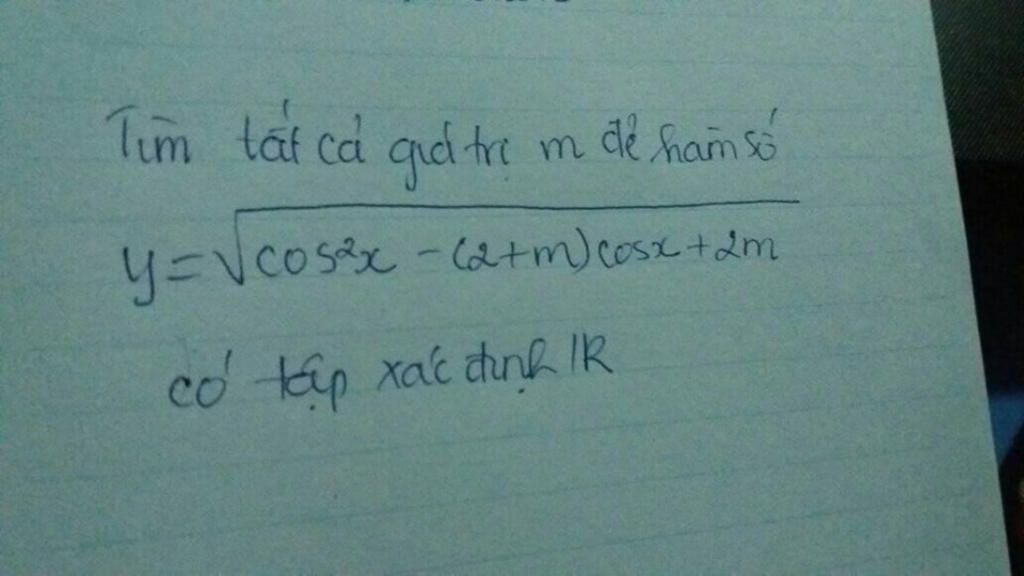 Tìm tất cả giá trị m để hàm số
y = √cos²x - (2+m)cosx + 2m
có tập xác định IR